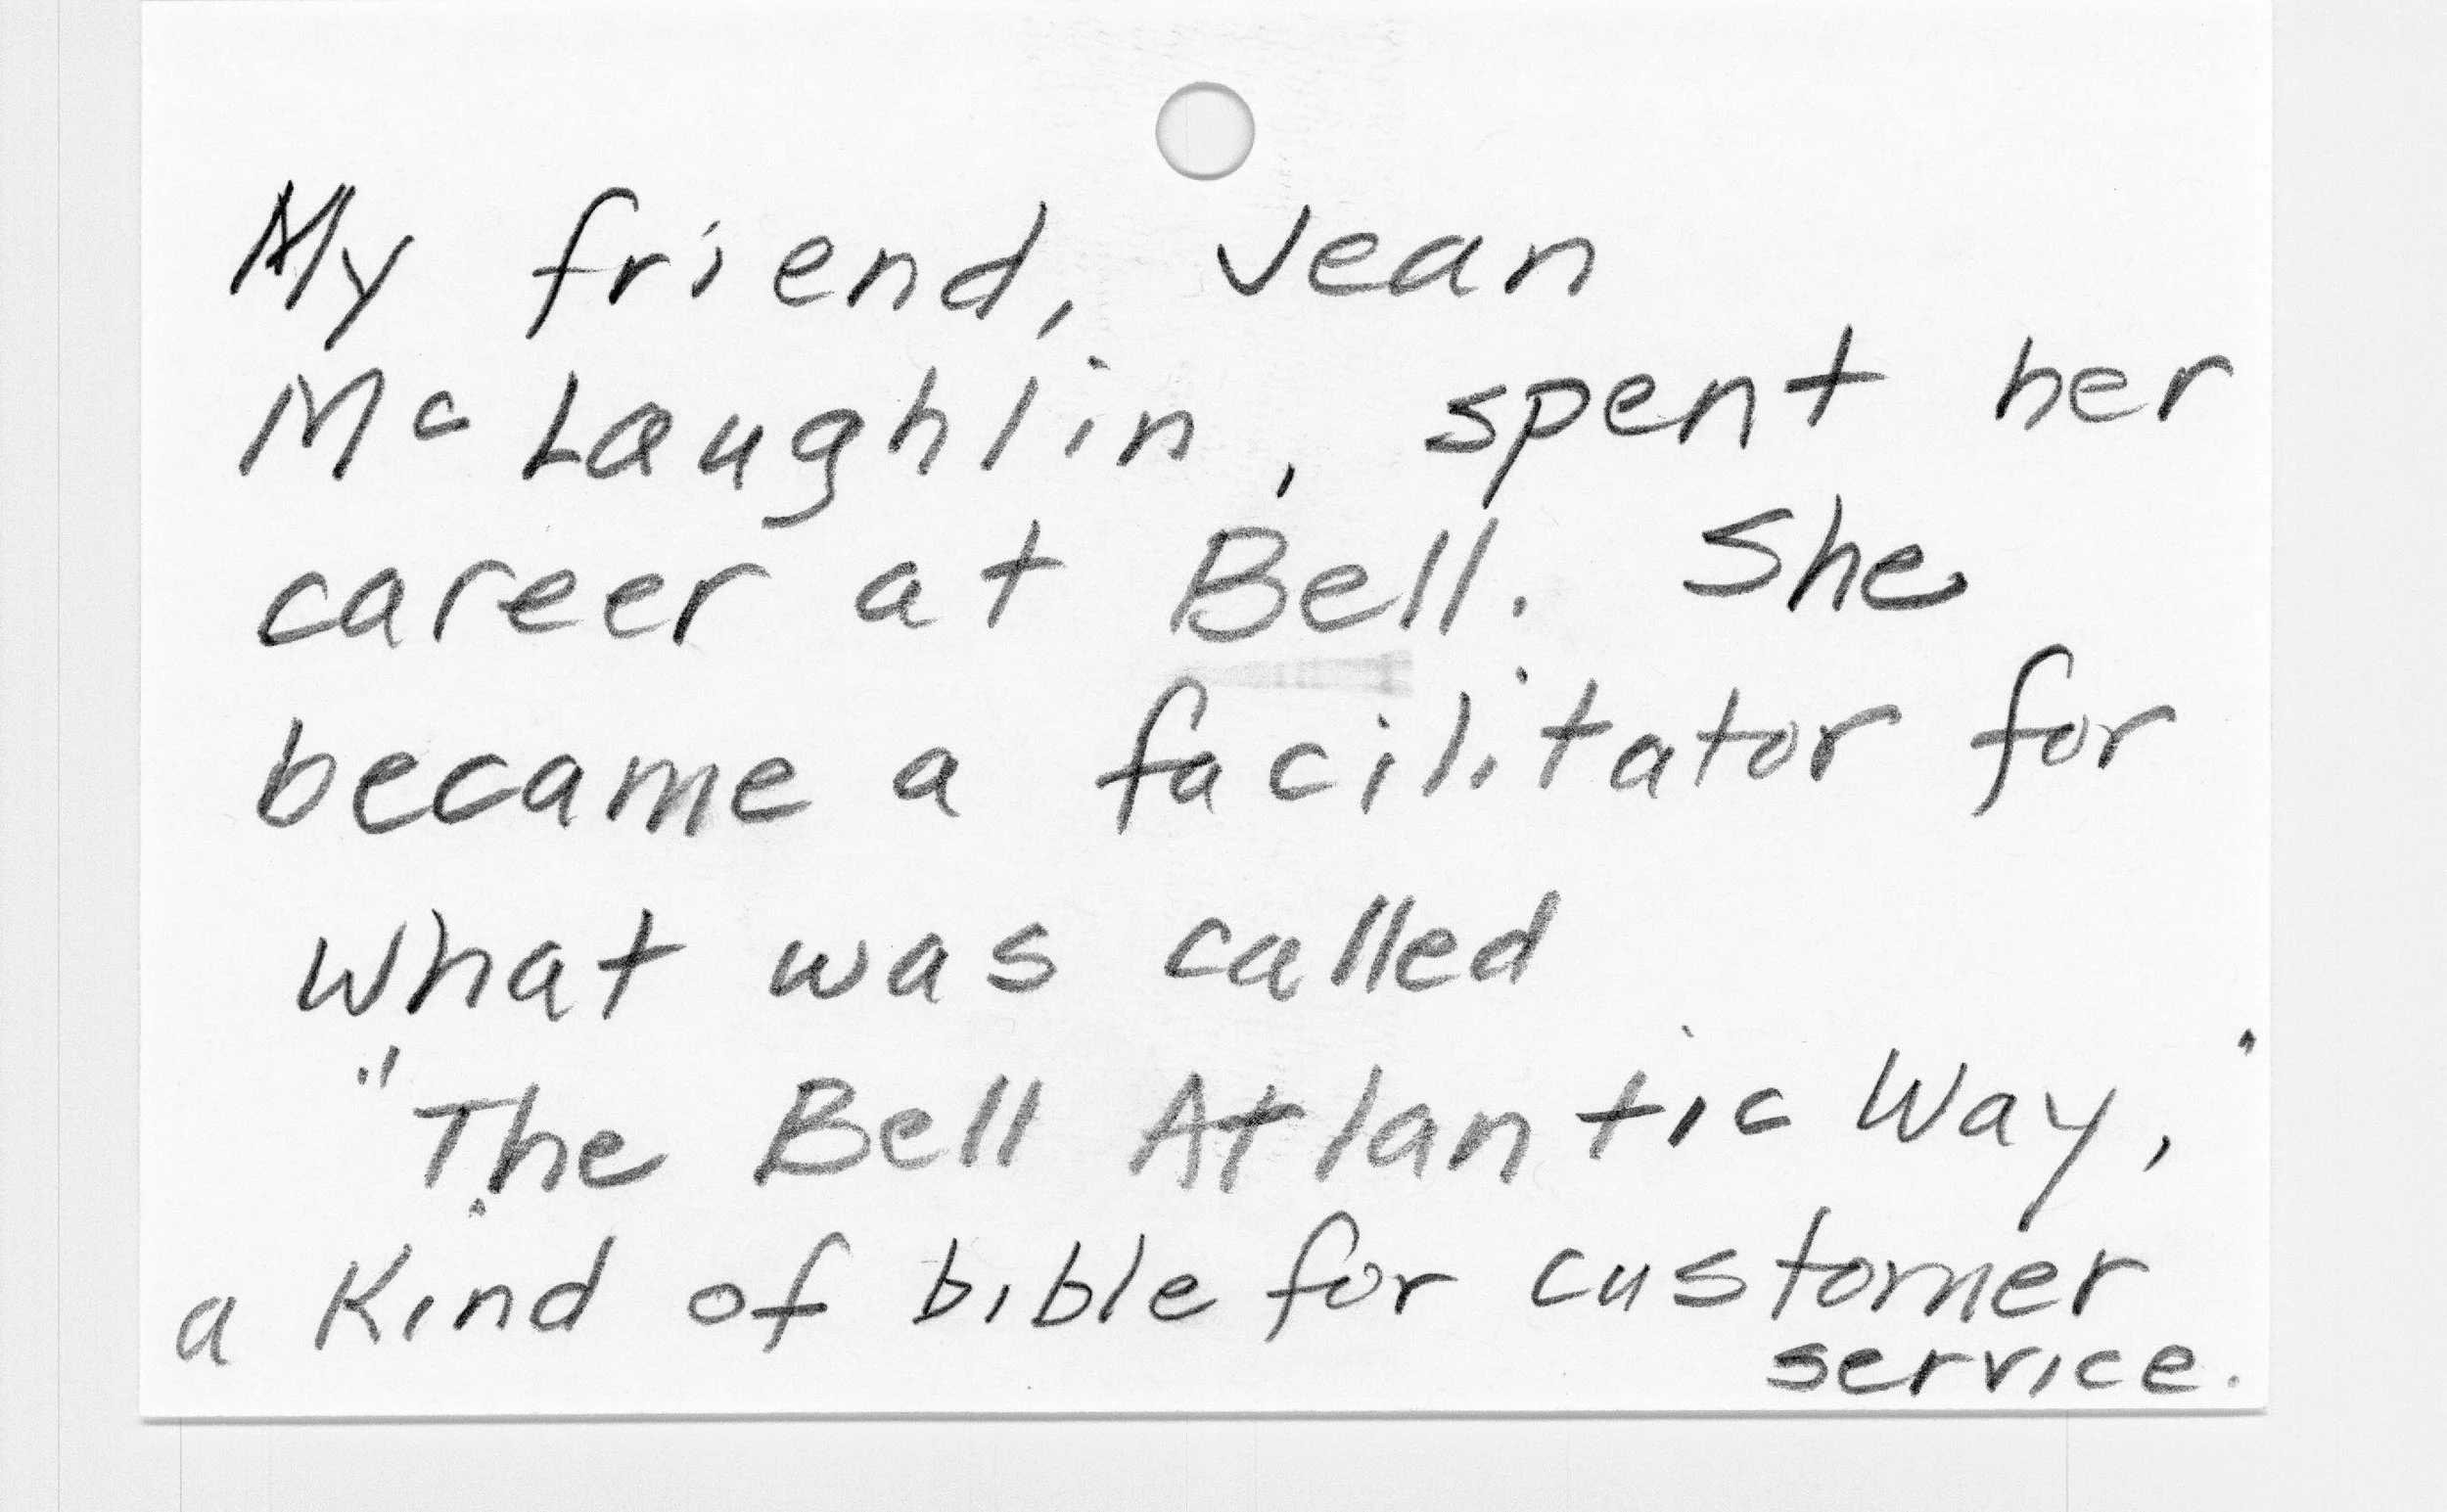 My friend, Jean
McLaughlin, spent her
career at Bell. She
became a facilitator for
what was called
"The Bell Atlantic Way,"
a Kind of bible for customer
service.